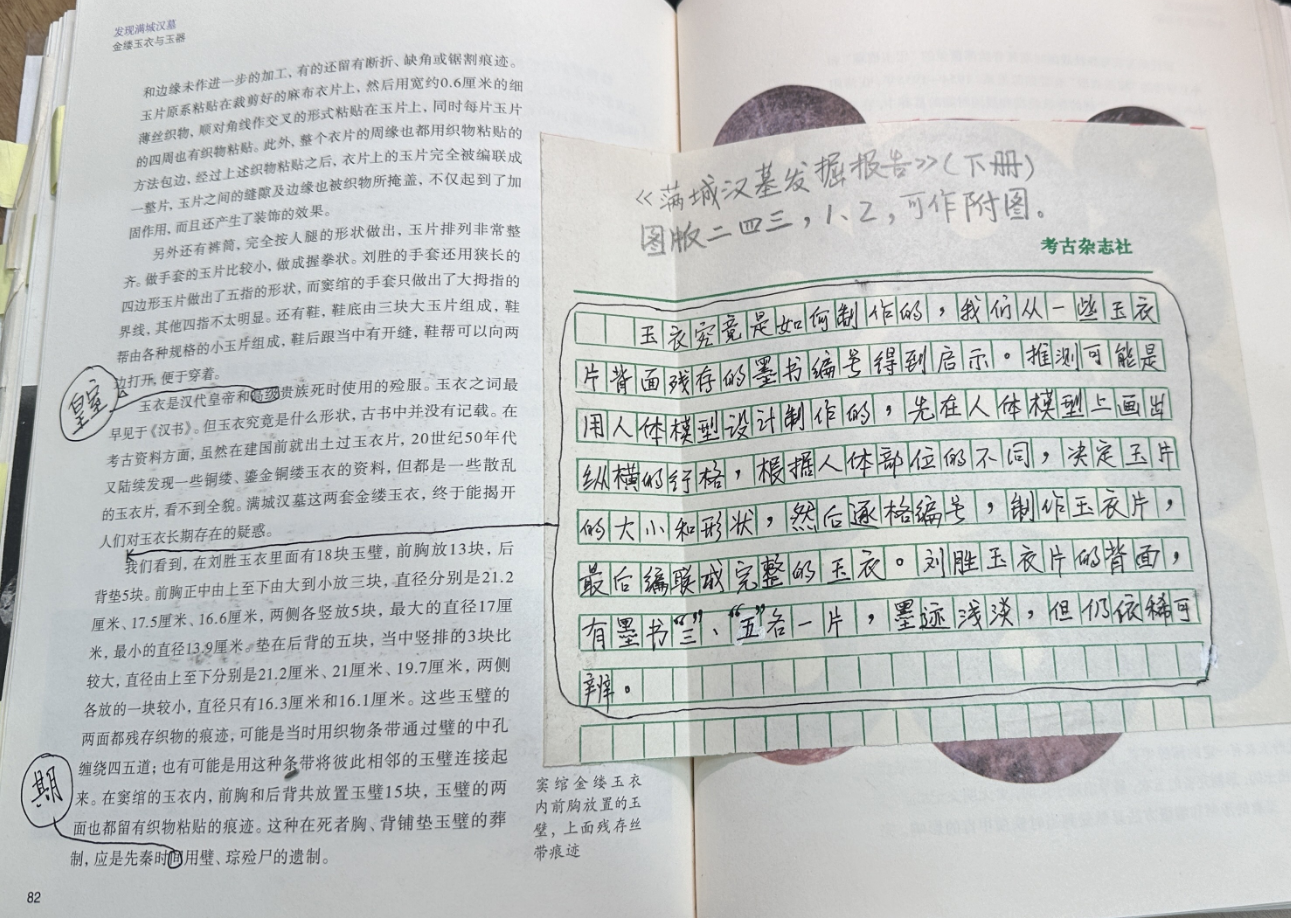 发现满城汉墓
金缕玉衣与玉器
和边缘未作进一步的加工、有的还留有断折、缺角或锯割痕迹。
玉片原系粘贴在裁剪好的麻布衣片上、然后用宽约0.6厘米的细
薄丝织物，顺对角线作交叉的形式粘贴在玉片上，同时每片玉片
的四周也有织物粘贴。此外，整个衣片的周缘也都用织物粘贴的
方法包边，经过上述织物粘贴之后、衣片上的玉片完全被编联成
一整片，玉片之间的缝隙及边缘也被织物所掩盖，不仅起到了加
固作用，而且还产生了装饰的效果。
另外还有裤筒，完全按人腿的形状做出，玉片排列非常整
齐。做手套的玉片比较小，做成握拳状。刘胜的手套还用狭长的
四边形玉片做出了五指的形状，而窦绾的手套只做出了大拇指的
界线，其他四指不太明显。还有鞋，鞋底由三块大玉片组成，鞋
帮由各种规格的小玉片组成，鞋后跟当中有开缝，鞋帮可以向两
边打开，便于穿着。
皇室
玉衣是汉代皇帝和高级贵族死时使用的殓服。玉衣之词最
早见于《汉书》。但玉衣究竟是什么形状，古书中并没有记载。在
考古资料方面，虽然在建国前就出土过玉衣片，20世纪50年代
又陆续发现一些铜缕、鎏金铜缕玉衣的资料，但都是一些散乱
的玉衣片，看不到全貌。满城汉墓这两套金缕玉衣，终于能揭开
人们对玉衣长期存在的疑惑。
我们看到，在刘胜玉衣里面有18块玉璧，前胸放13块，后
背垫5块。前胸正中由上至下由大到小放三块，直径分别是21.2
厘米、17.5厘米、16.6厘米，两侧各竖放5块，最大的直径17厘
米，最小的直径13.9厘米。垫在后背的五块，当中竖排的3块比
较大，直径由上至下分别是21.2厘米、21厘米、19.7厘米，两侧
各放的一块较小，直径只有16.3厘米和16.1厘米。这些玉璧的
两面都残存织物的痕迹，可能是当时用织物条带通过璧的中孔
缠绕四五道；也有可能是用这种条带将彼此相邻的玉璧连接起
来。在窦绾的玉衣内，前胸和后背共放置玉璧15块，玉璧的两
面也都留有织物粘贴的痕迹。这种在死者胸、背铺垫玉璧的葬
制，应是先秦时间用璧、琮殓尸的遗制。
期
82
《满城汉墓发掘报告》（下册）
图版二四三，1、2，可作附图。
考古杂志社
玉衣究竟是如何制作的，我们从一些玉衣
片背面残存的墨书编号得到启示。推测可能是
用人体模型设计制作的，先在人体模型上画出
纵横的行格，根据人体部位的不同，决定玉片
的大小和形状，然后逐格编号，制作玉衣片，
最后编联成完整的玉衣。刘胜玉衣片的背面，
有墨书“三”、“五”各一片，墨迹浅淡，但仍依稀可
辨。
窦绾金缕玉衣
内前胸放置的玉
璧，上面残存丝
带痕迹